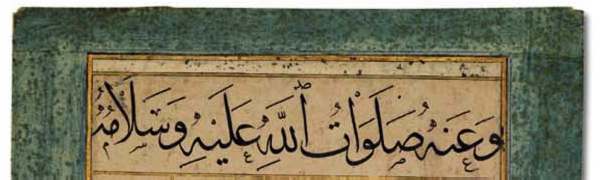 وَعَنْهُ صَلَوَاتُ ٱللَّهِ عَلَيْهِ وَسَلَامُهُ